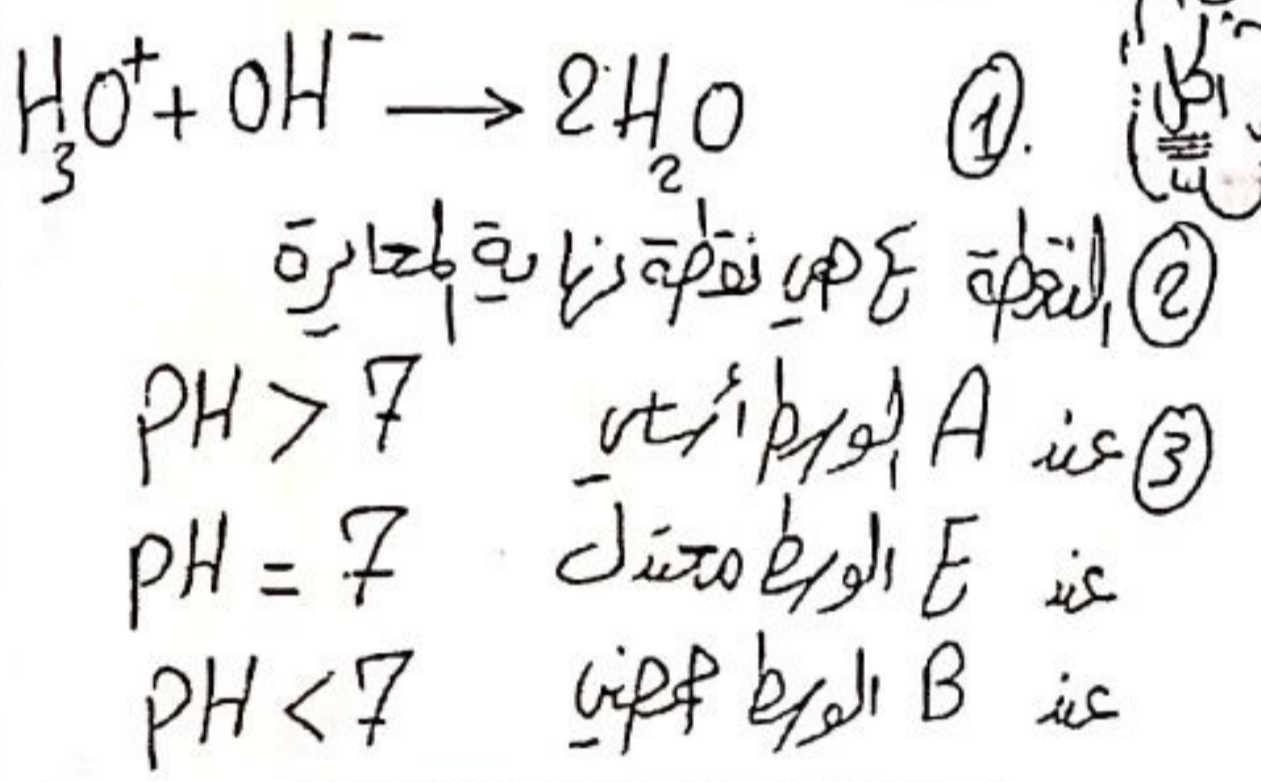 الحل
① H₃O⁺ + OH⁻ → 2H₂O
② النقطة E هي نقطة نهاية المعايرة
③ عند A الوسط أساسي pH > 7
عند E الوسط معتدل pH = 7
عند B الوسط حمضي pH < 7